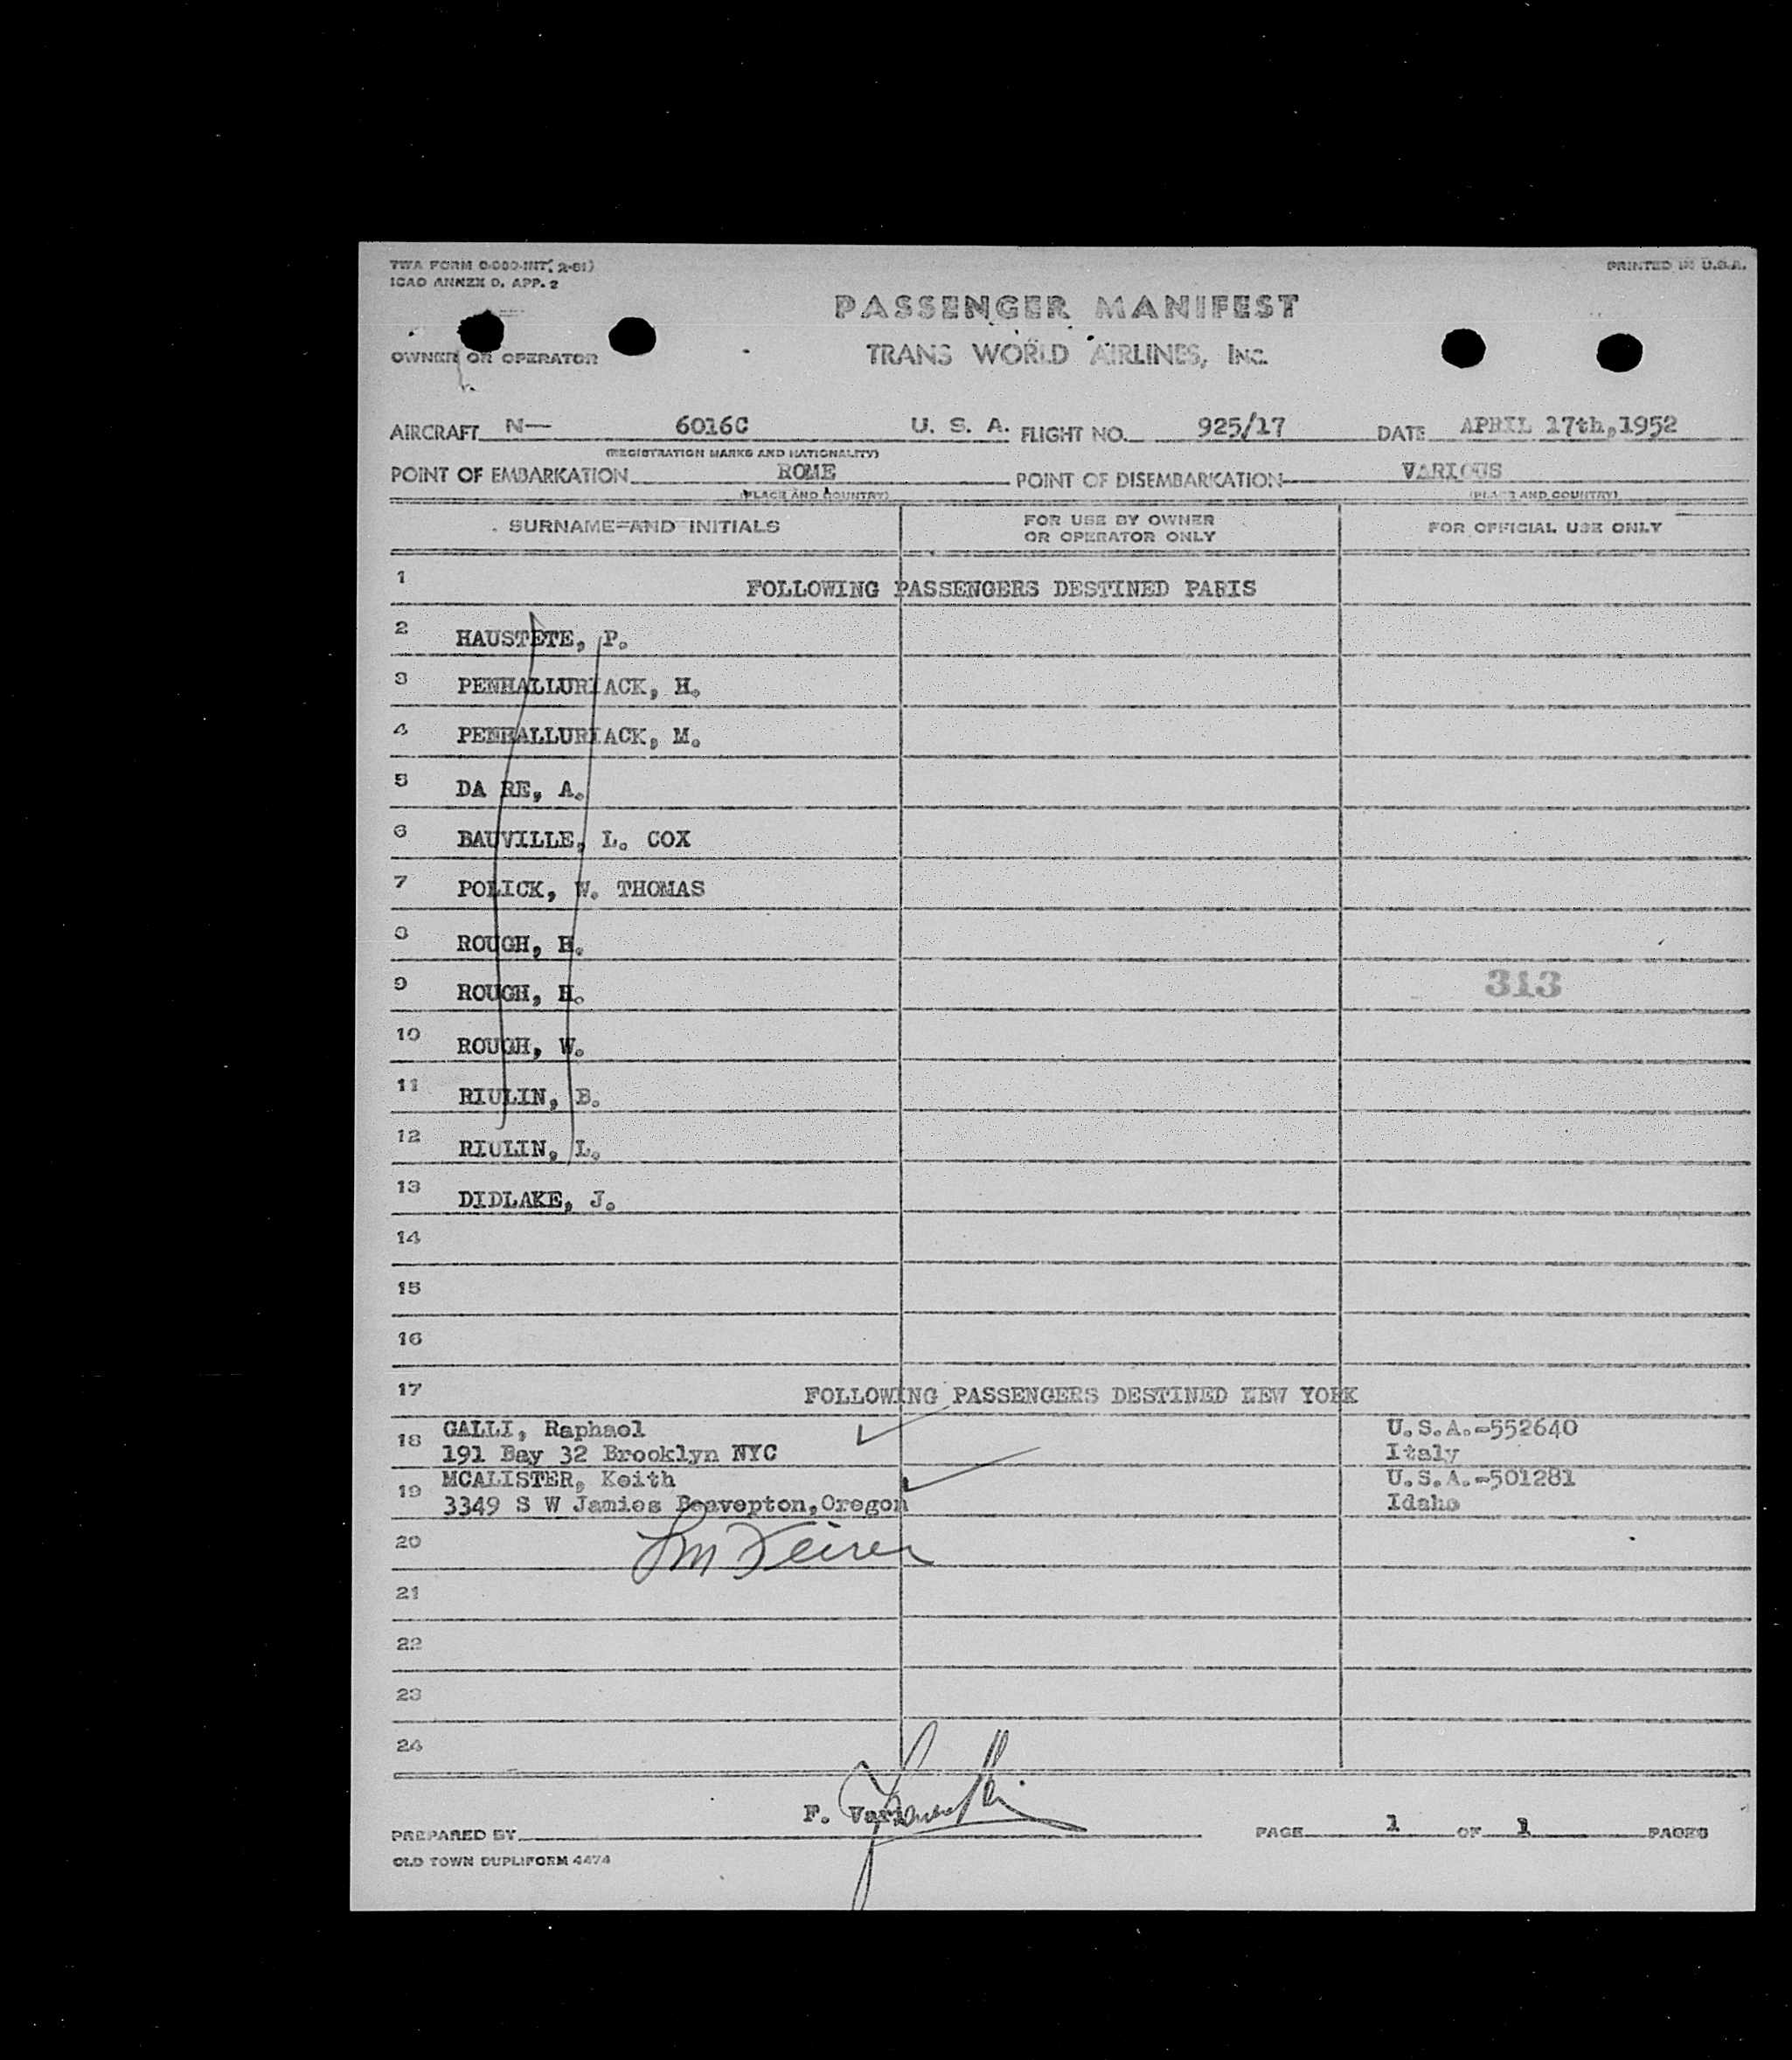 TWA FORM
ICAO ANNEX 9. APP. 2
PRINTED IN U.S.A.
PASSENGER MANIFEST
OWNER OR OPERATOR
TRANS WORLD AIRLINES, INC.
AIRCRAFT N— 6016C U. S. A. FLIGHT NO. 925/17 DATE APRIL 17th,1952
(REGISTRATION MARKS AND NATIONALITY)
POINT OF EMBARKATION ROME POINT OF DISEMBARKATION VARIOUS
(PLACE AND COUNTRY) (PLACE AND COUNTRY)
SURNAME AND INITIALS FOR USE BY OWNER OR OPERATOR ONLY FOR OFFICIAL USE ONLY
1 FOLLOWING PASSENGERS DESTINED PARIS
2 HAUSTETE, P.
3 PENHALLURIACK, H.
4 PENHALLURIACK, M.
5 DA RE, A.
6 BAUVILLE, L. COX
7 POLICK, W. THOMAS
8 ROUGH, H.
9 ROUGH, H. 313
10 ROUGH, W.
11 RIULIN, B.
12 RIULIN, L.
13 DIDLAKE, J.
14
15
16
17 FOLLOWING PASSENGERS DESTINED NEW YORK
18 GALLI, Raphael U.S.A.-552640
191 Bay 32 Brooklyn NYC Italy
19 MCALISTER, Keith U.S.A.-501281
3349 S W Jamies Beavepton,Oregon Idaho
20
21
22
23
24
PREPARED BY F. PAGE 1 OF 1 PAGES
OLD TOWN DUPLIFORM 4474